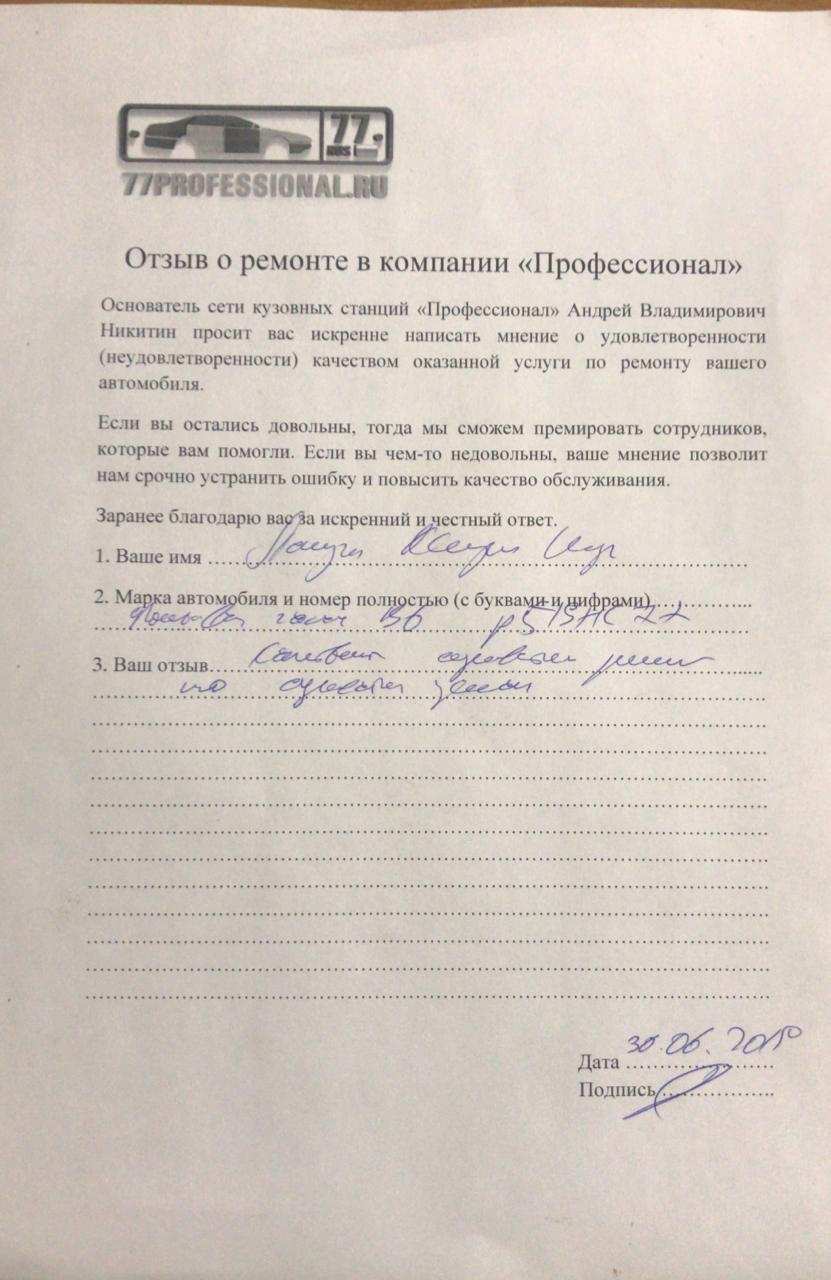 77
RUS
77PROFESSIONAL.RU
Отзыв о ремонте в компании «Профессионал»
Основатель сети кузовных станций «Профессионал» Андрей Владимирович
Никитин просит вас искренне написать мнение о удовлетворенности
(неудовлетворенности) качеством оказанной услуги по ремонту вашего
автомобиля.
Если вы остались довольны, тогда мы сможем премировать сотрудников,
которые вам помогли. Если вы чем-то недовольны, ваше мнение позволит
нам срочно устранить ошибку и повысить качество обслуживания.
Заранее благодарю вас за искренний и честный ответ.
1. Ваше имя
2. Марка автомобиля и номер полностью (с буквами и цифрами)
3. Ваш отзыв
по
Дата 30.06.
Подпись